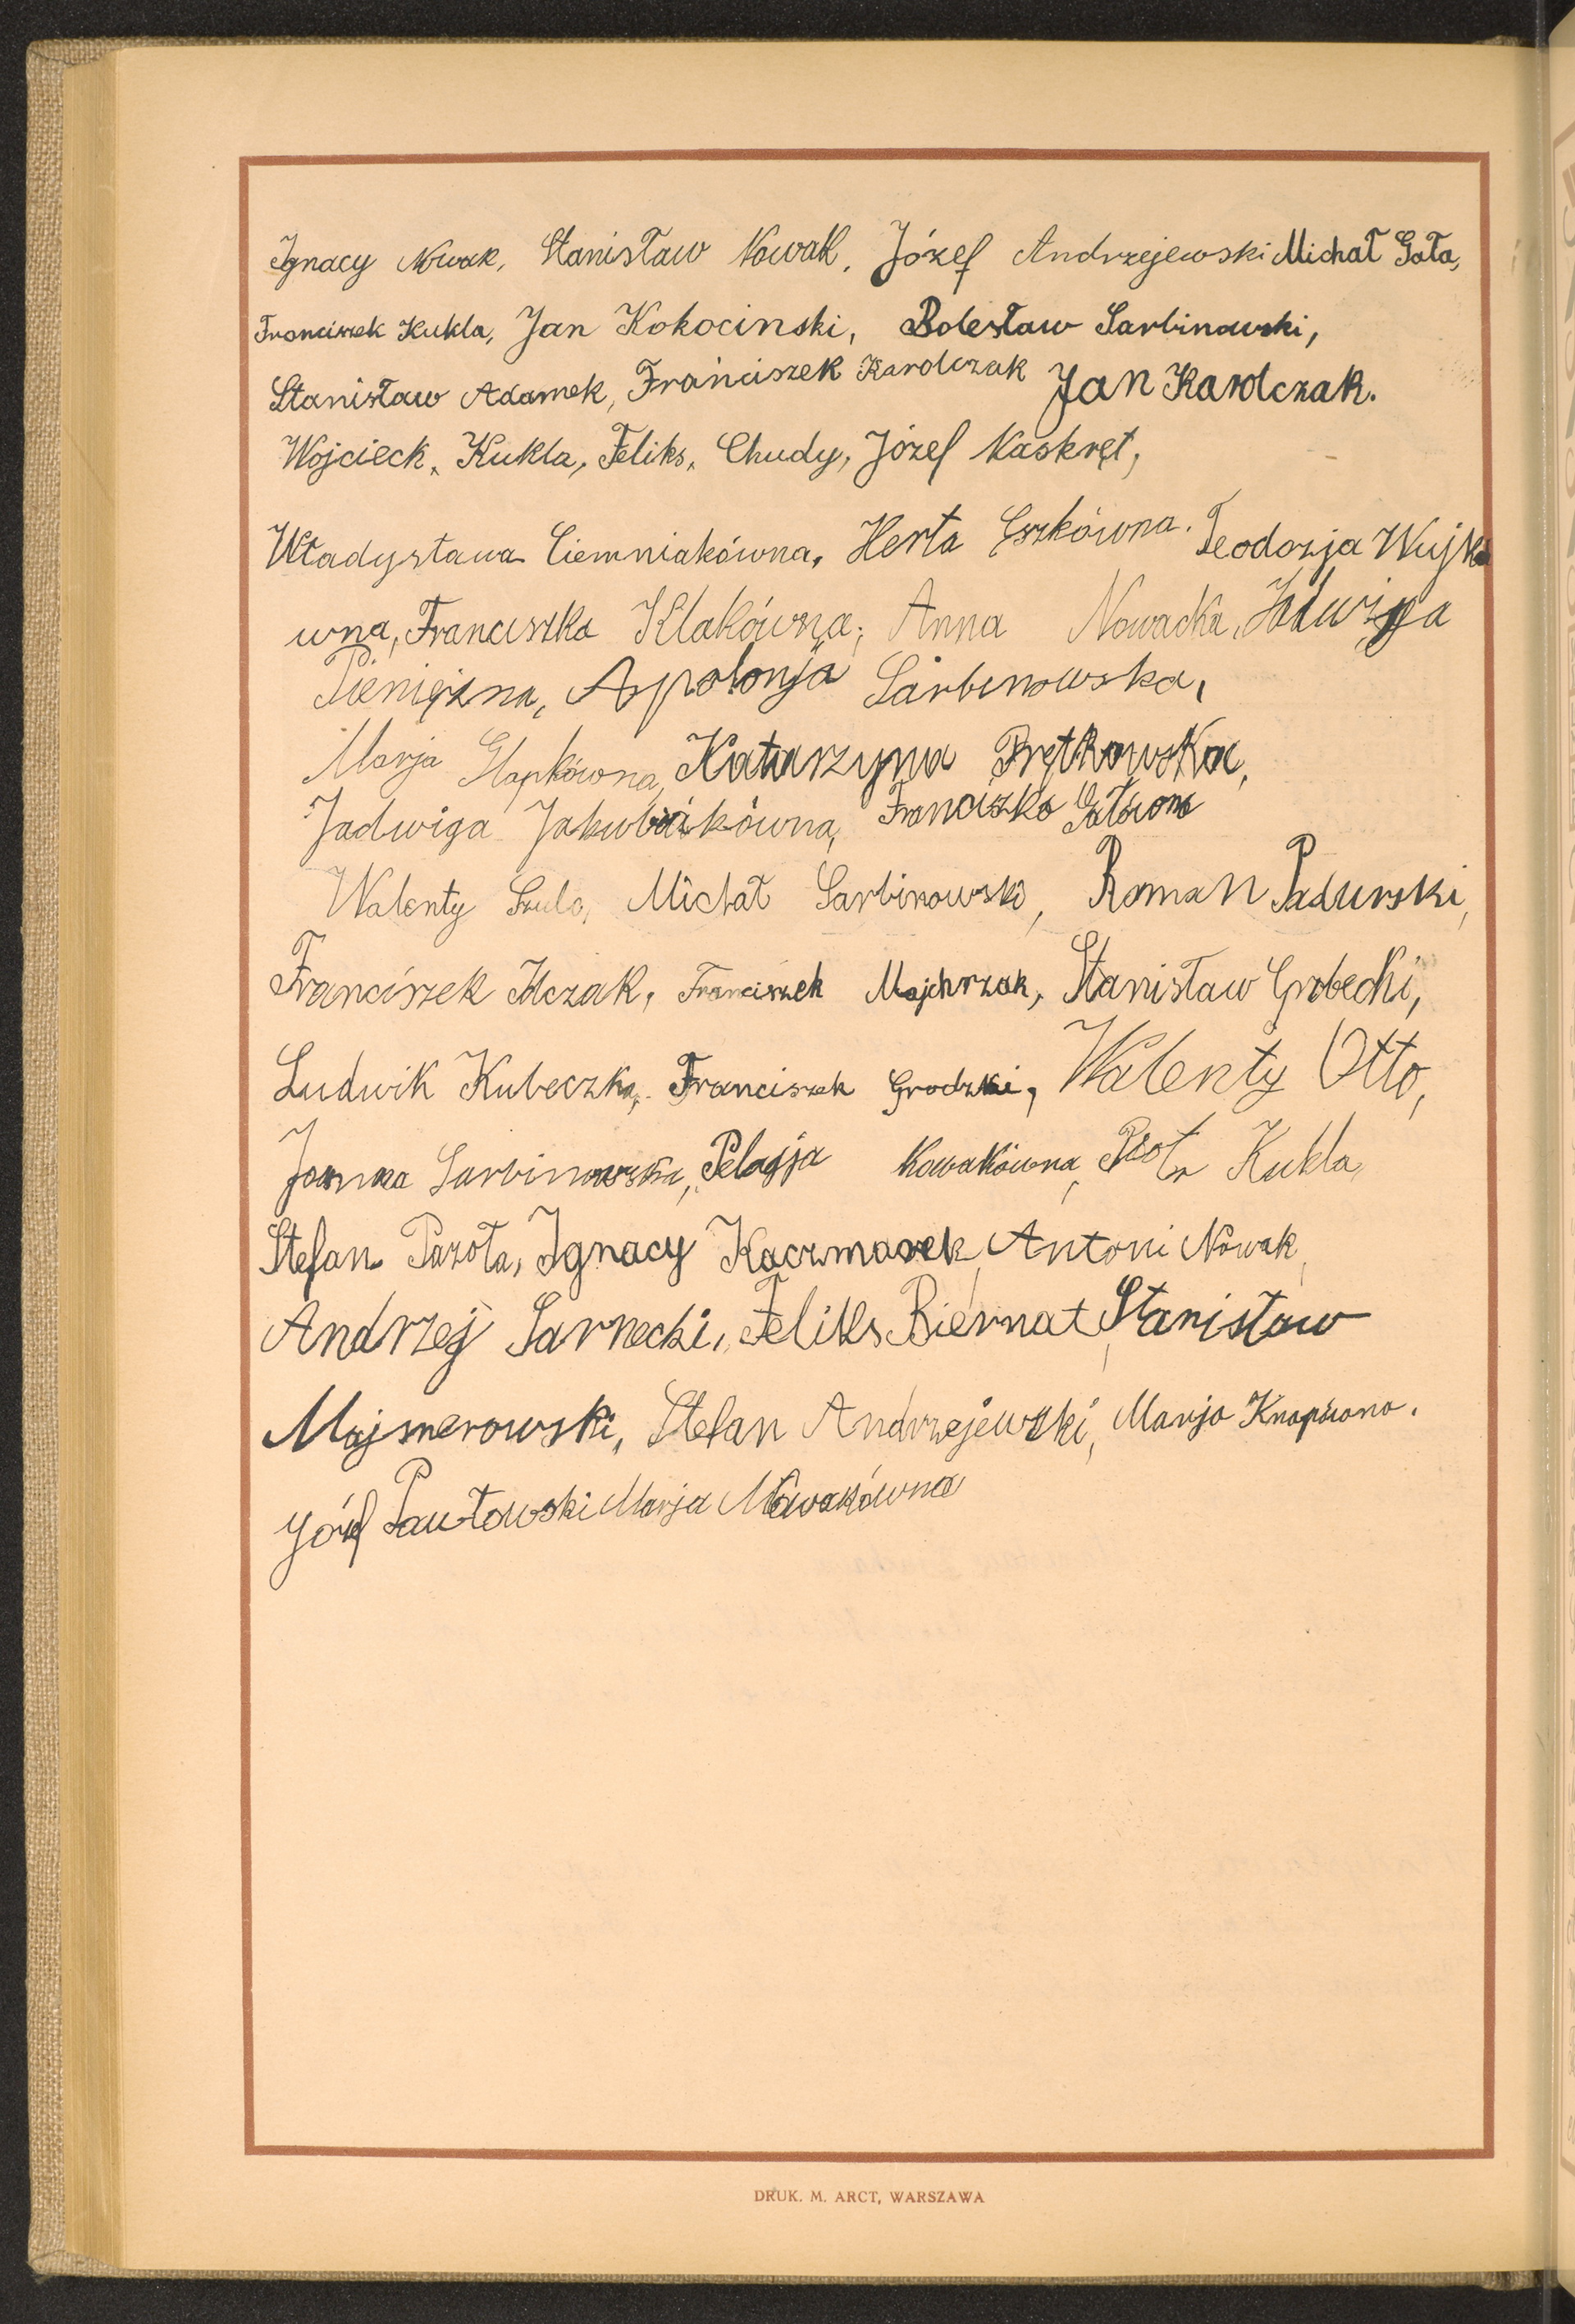 Ignacy Nowak, Stanisław Nowak, Józef Andrzejewski Michał Gała,
Franciszek Kukla, Jan Kokocinski, Bolesław Sarbinowski,
Stanisław Adamek, Franciszek Karolczak Jan Karolczak.
Wojcieck, Kukla, Feliks, Chudy, Józef Kaskręt,
Władysława Ciemniakówna, Herta Eszkówna. Teodozja Wujko
wna, Franciszka Klakówna, Anna Nowacka, Jadwiga
Pieniężna, Apolonja Sarbinowska,
Marja Słapkówna, Katarzyna Prętkowska,
Jadwiga Jakubiakówna, Franciszka
Walenty Szulc, Michał Sarbinowski, Roman Padurski,
Franciszek Ilczak, Franciszek Majchrzak, Stanisław Grobecki,
Ludwik Kubeczka, Franciszek Grodzki, Walenty Otto,
Joanna Sarbinowska, Pelagja Nowakówna, Piotr Kukla,
Stefan Pazoła, Ignacy Kaczmarek, Antoni Nowak,
Andrzej Sarnecki, Feliks Biernat, Stanisław
Majsnerowski, Stefan Andrzejewski, Marja Knapówna.
Józef Pawłowski Marja Nowakówna
DRUK. M. ARCT, WARSZAWA